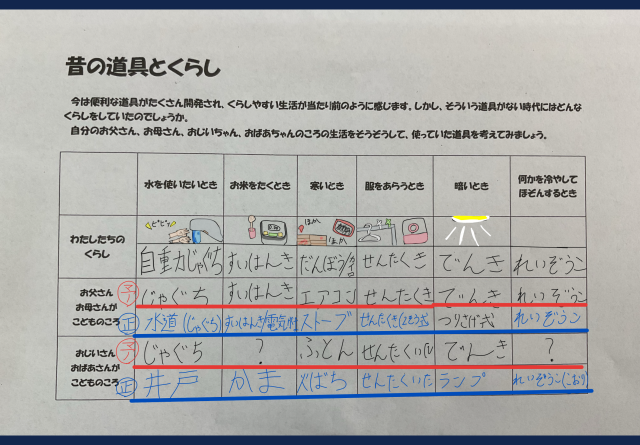 昔の道具とくらし
今は便利な道具がたくさん開発され、くらしやすい生活が当たり前のように感じます。しかし、そういう道具がない時代にはどんな
くらしをしていたのでしょうか。
自分のお父さん、お母さん、おじいちゃん、おばあちゃんのころの生活をそうぞうして、使っていた道具を考えてみましょう。
水を使いたいとき お米をたくとき 寒いとき 服をあらうとき 暗いとき 何かを冷やして
ほぞんするとき
ピピッ ほか ほか
わたしたちの
くらし
自動じゃぐち すいはんき だんぼう せんたくき でんき れいぞうこ
お父さん
お母さんが
こどものころ
予 じゃぐち すいはんき エアコン せんたくき でんき れいぞうこ
正 水道(じゃぐち) すいはんき/電気 ストーブ せんたくき(2そう式) つりさげ式 れいぞうこ
おじいさん
おばあさんが
こどものころ
予 じゃぐち ? ふとん せんたくいた でんき ?
正 井戸 かま 火ばち せんたくいた ランプ れいぞうこ(こおり)